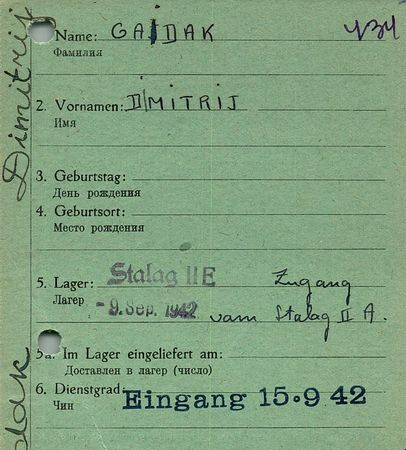 Name: GAIDAK 434
Фамилия
2. Vornamen: DIMITRIJ
Имя
3. Geburtstag:
День рождения
4. Geburtsort:
Место рождения
5. Lager: Stalag II E Zugang
Лагер
- 9. Sep. 1942 vom Stalag II A.
5a. Im Lager eingeliefert am:
Доставлен в лагер (число)
6. Dienstgrad:
Чин
Eingang 15·9 42
Dimitrij